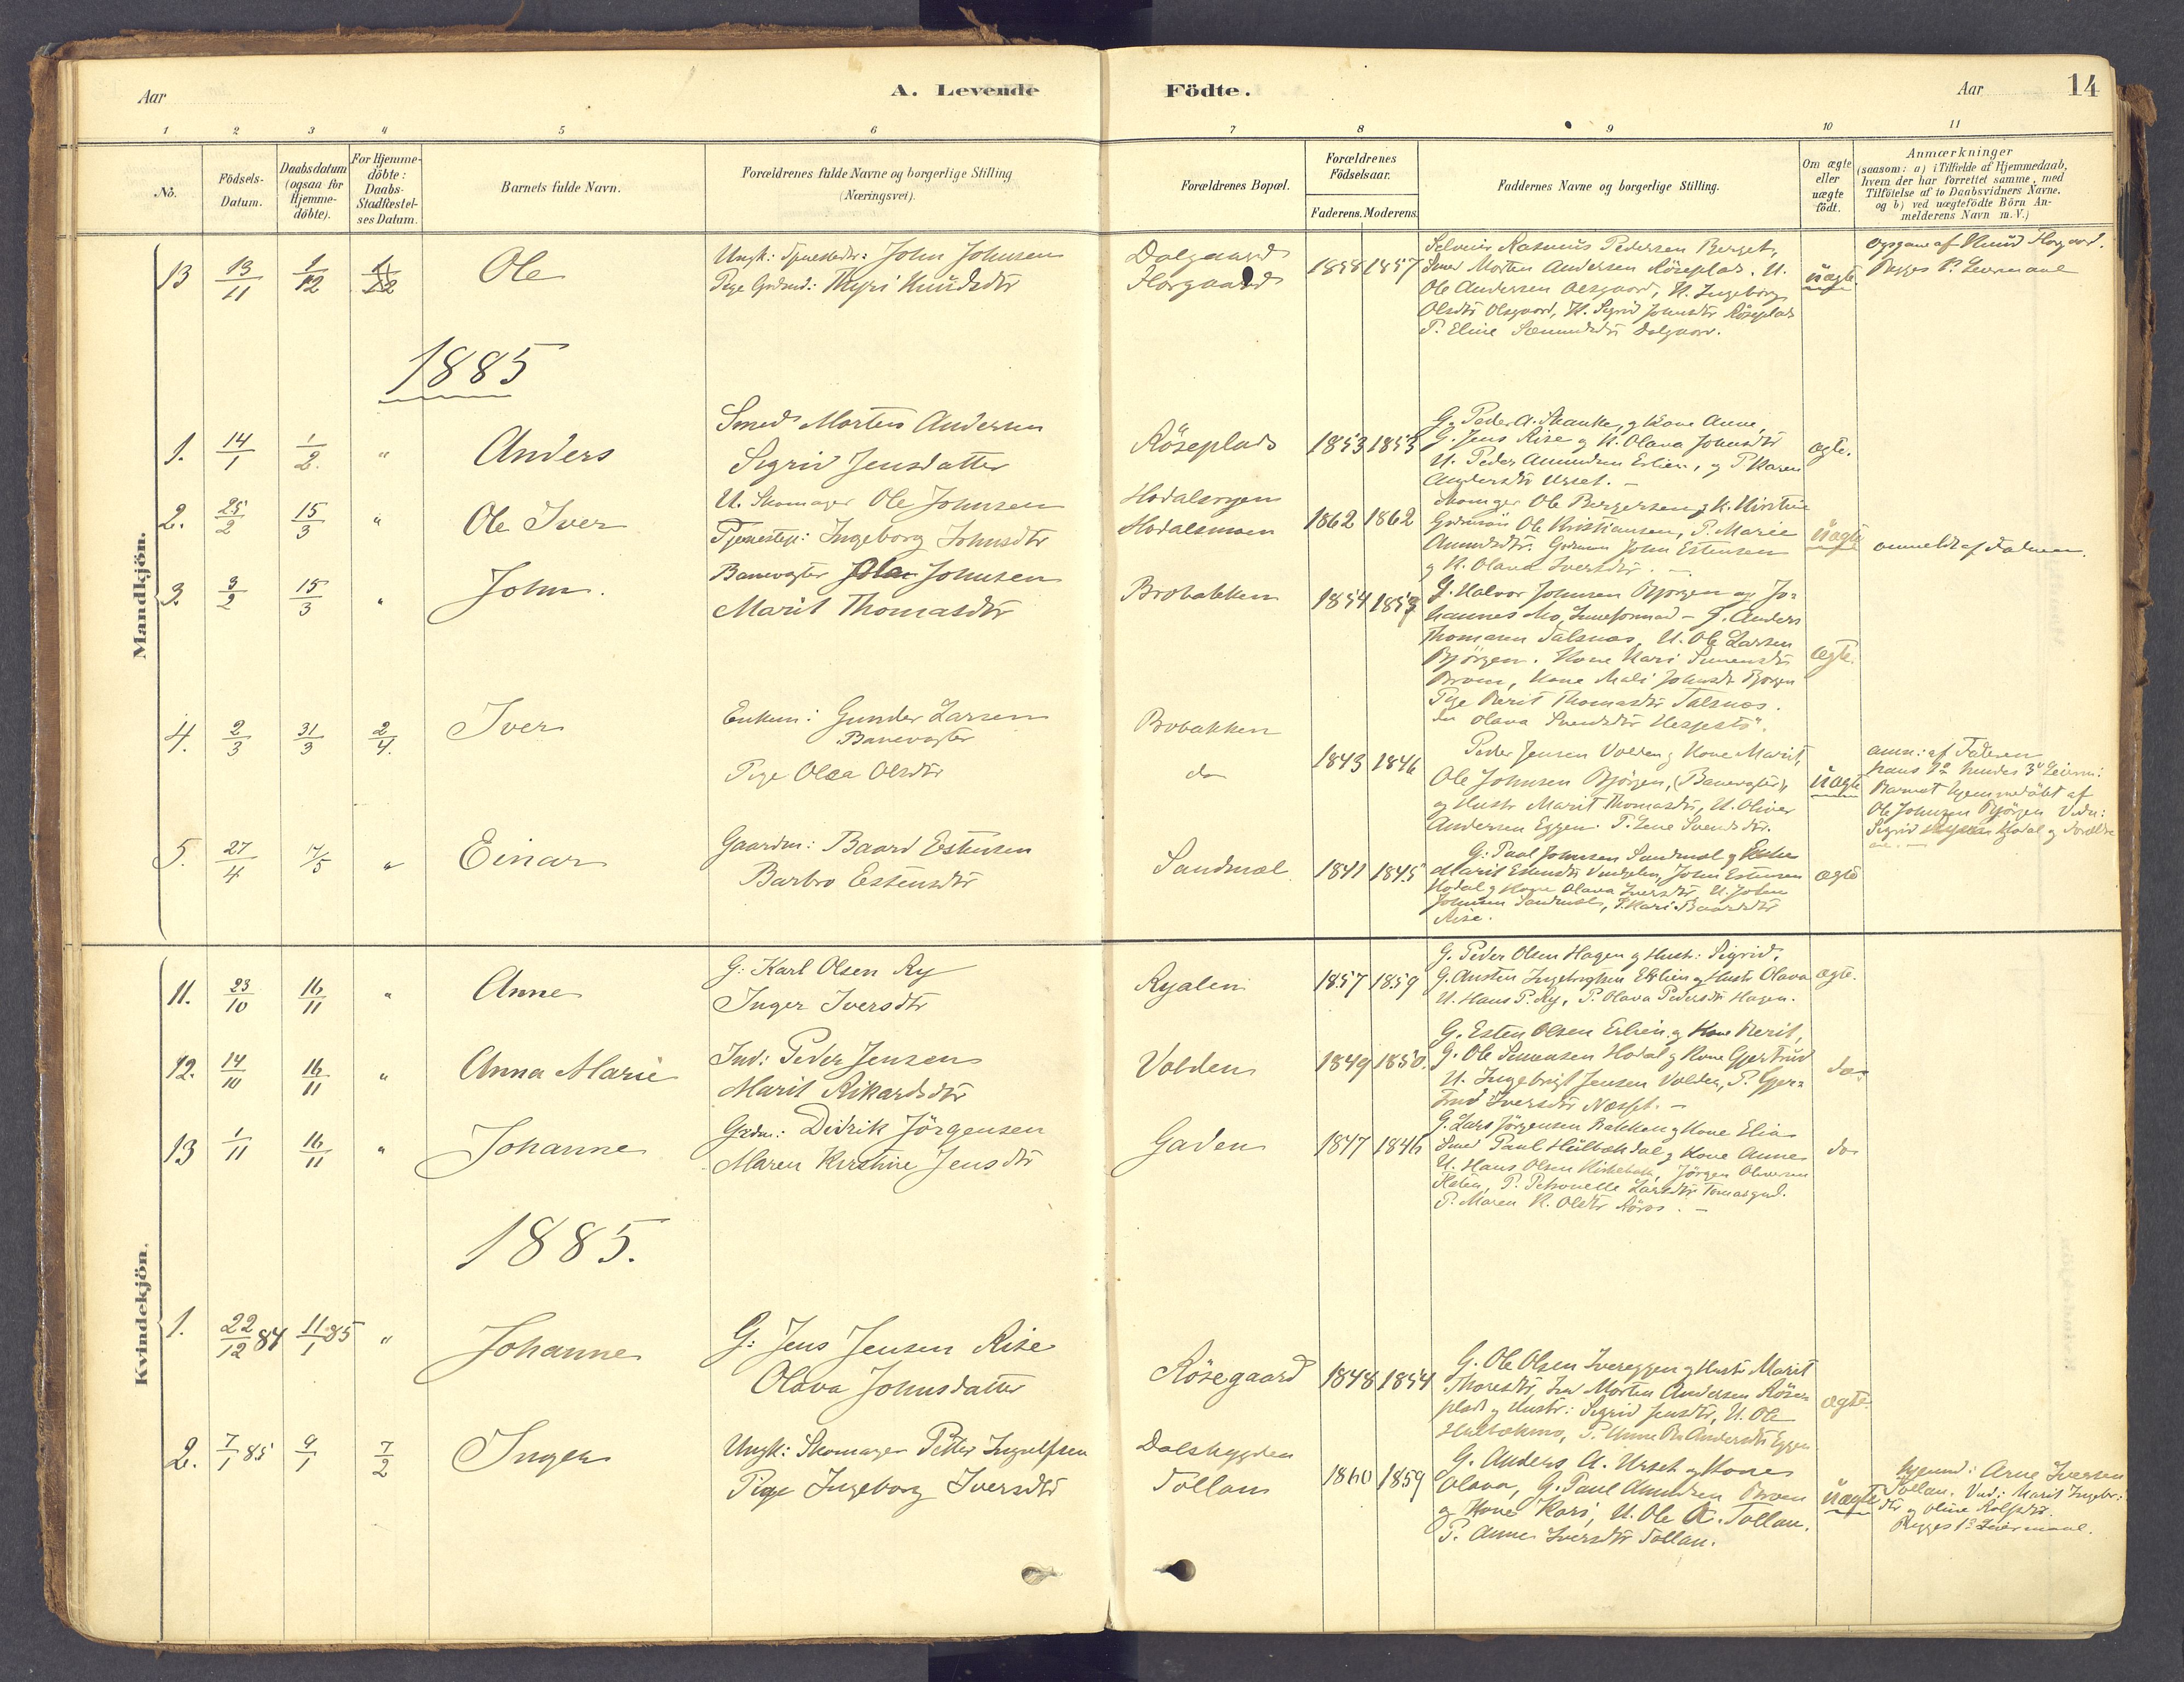 Aar
A. Levende
Födte.
Aar
14
1 2 3 4 5 6 7 8 9 10 11
No.
Födsels-
Datum.
Daabsdatum
(ogsaa for
Hjemme-
döbte).
For Hjemme-
döbte:
Daabs-
Stadfæstel-
ses Datum.
Barnets fulde Navn.
Forældrenes fulde Navne og borgerlige Stilling
(Næringsvei).
Forældrenes Bopæl.
Forældrenes
Födselsaar.
Faderens. Moderens.
Faddernes Navne og borgerlige Stilling.
Om ægte
eller
uægte
födt.
Anmærkninger
(saasom: a) i Tilfælde af Hjemmedaab,
hvem der har forrettet samme, med
Tilföielse af to Daabsvidners Navne,
og b) ved uægtefödte Börn An-
melderens Navn m.V.)
Mandkjön.
13 13/11 1/12 Ole
Ungk: John Johnsen
Pige Thyri Knudsdtr
Dalgaard
Horgaard
1858 1857
Rasmus Pedersen Berget,
Smed Morten Andersen Röseplads. U.
Ole Andersen Olsgaard, K. Ingeborg
Olsdtr Olsgaard, K. Sigrid Johnsdtr Röseplads
P. Eline Dalgaard.
uægte
Opgave af Knud Horgaard.
Begges 1ste Leiermaal
1885
1. 14/1 1/2. " Anders
Smed Morten Andersen
Sigrid Jensdatter
Röseplads
1853 1853
G. Peder A. Skanke, og Kone Anne,
G. Jens Rise og K. Olava Johnsdtr
U. Peder Amundsen Erlien, og P. Karen
Andersdtr Urset. –
ægte.
2. 25/2 15/3 " Ole Iver
U. Skomager Ole Johnsen
Tjenestep: Ingeborg Johnsdtr
Hodalsmoen
1862 1862
Skomager Ole Bergersen og K. Kirstine
Ole Kristiansen, P. Marie
Amundsdtr. John Estensen
og K. Olava Iversdtr. –
uægte
anmeldt af Faderen.
3. 3/2 15/3 " John.
Banevogter Ole Johnsen
Marit Thomasdtr
Brobakken
1854 1859
G. Halvor Johnsen Bjorgen og Jo-
hannes Mo, – G. Anders
Thomasen Talsnæs, U. Ole Larsen
Björgen. Kone Kari Simensdtr
Kone Mali Johnsdtr Bjorgen
Pige Berit Thomasdtr Talsnæs.
Olava Svendsdtr
ægte.
4. 2/3 31/3 2/4. Iver
Enkem: Gunder Larsen
Banevogter
Pige Olea Olsdtr
Brobakken
do
1843 1846
Peder Jensen Volden og Kone Marit,
Ole Johnsen Björgen, (Banevogter),
og Hustr Marit Thomasdtr, U. Oliver
Andersen Eggen. P. Lene Svendsdtr.
uægte
anm: af Faderen
hans 1ste hendes 3die Leierm:
Barnet hjemmedöbt af
Ole Johnsen Björgen Vidn:
Sigrid Hodal og Forældre
5. 27/4 17/5 " Einar
Gaardm: Baard Estensen
Barbro Estensdtr
Sandmæl
1841 1845
G: Paal Johnsen Sandmæl og
Marit Estensdtr Vingelen, John Estensen
Hodal og Kone Olava Iversdtr, U. John
Johnsen Sandmæl, P. Kari Baardsdtr
Rise.
ægte
Kvindekjön.
11. 23/10 16/11 " Anne
G: Karl Olsen Ry
Inger Iversdtr
Ryalen
1857 1859
G. Peder Olsen Hagen og Hustr: Sigrid,
G. Austen Ingebrigtsen Erlien og Hustr Olava
U. Hans P. Ry, P. Olava Pedersdtr Hagen.
ægte.
12. 14/10 16/11 " Anna Marie
Ind: Peder Jensen
Marit Rikardsdtr
Volden
1849 1850.
G. Esten Olsen Erlien og Kone Berit,
G. Ole Simensen Hodal og Kone Gjertrud
U. Ingebrigt Jensen Volden, P. Gjer-
trud Iversdtr Næsset. –
do
13 1/11 16/11 " Johanne
Grdm: Didrik Jörgensen
Maren Kirstine Jensdtr
Gaden
1847 1846
G. Lars Jörgensen Bakken og Kone Elia
Smed Paul Hulbækdal og Kone Anne
U. Hans Olsen Kirkebak, Jörgen Oliversen
Floten, P. Petronelle Larsdtr
P. Maren K. Olsdtr Röros. –
do
1885.
1. 22/12 84 11/1 85 " Johanne
G: Jens Jensen Rise
Olava Johnsdatter
Rösegaard
1848 1854
G. Ole Olsen Ivereggen og Hustr Marit
Thoresdtr, Ind Morten Andersen Röse-
plads og Hustr: Sigrid Jensdtr, U. Ole
Hulbækmo, P. Andersdtr Eggen
ægte.
2. 7/1 85 9/1 7/2 Inger
Ungk: Skomager Petter Ingulfsen
Pige Ingeborg Iversdtr
Dalsbygden
Tollan
1860 1859
G. Anders A. Urset og Kone
Olava, G. Paul Amundsen Broen
og Kone Kari, U. Ole A. Tollan.
P. Anne Iversdtr Tollan.
uægte
hjemmd: Arne Iversen
Tollan. Vid: Marit Ingebr:
dtr og Oline Rolfsdtr.
Begges 1ste Leiermaal.